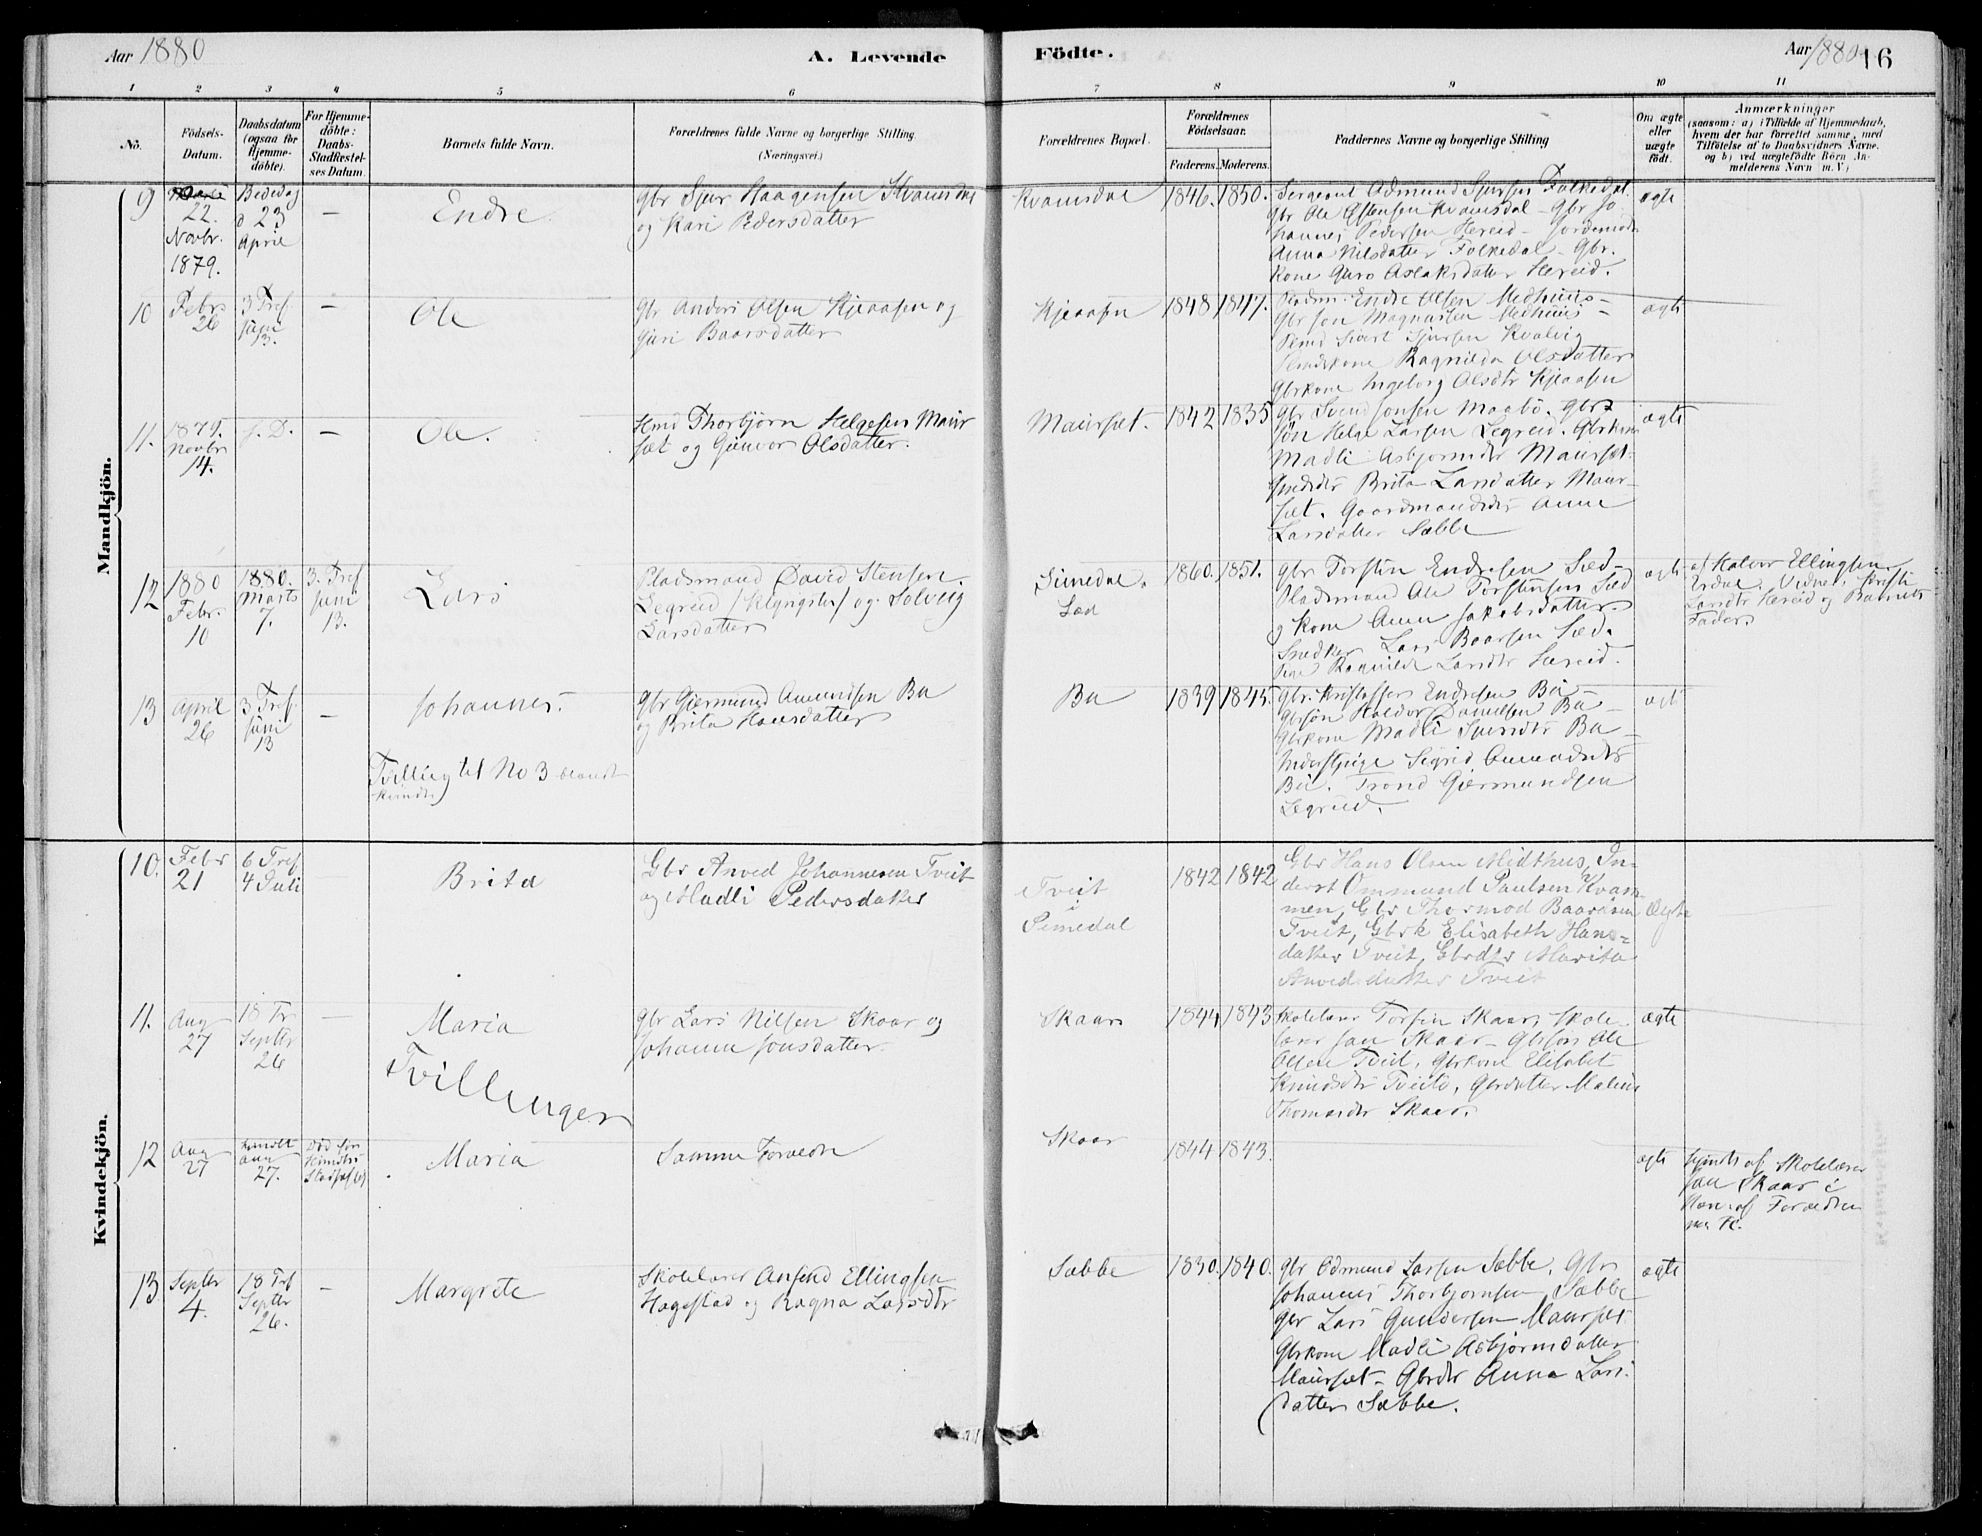 Aar 1880
A. Levende
Födte.
Aar 1880
16
1 2 3 4 5 6 7 8 9 10 11
No.
Födsels-Datum.
Daabsdatum (ogsaa for Hjemme-döbte).
For Hjemme-döbte: Daabs-Stadfæstel-ses Datum.
Barnets fulde Navn.
Forældrenes fulde Navne og borgerlige Stilling.
(Næringsvei.)
Forældrenes Bopæl.
Forældrenes Födselsaar.
Faderens. Moderens.
Faddernes Navne og borgerlige Stilling
Om ægte eller uægte födt.
Anmærkninger
(saasom: a) i Tilfælde af Hjemmedaab,
hvem der har forrettet samme, med
Tilföielse af to Daabsvidners Navne,
og b) ved uægtefödte Börn An-
melderens Navn m. V.)
Mandkjön.
9
22 Novbr. 1879.
Bededag d 23 April
–
Endre
Gbr Sjur Haagensen Kvamsdal
og Kari Pedersdatter
Kvamsdal
1846. 1850.
Sergeant Admund Sjursen Folkedal
Gbr Ole Østensen Kvamsdal – Gbr Jo-
hannes Pedersen Hereid – Jordemoder
Anna Nilsdatter Folkedal – Gbr.
kone Guro Aslaksdatter Hereid.
ægte
10
Febr 26
3 Tref Juni 13.
–
Ole
Gbr Anders Olsen Kjeaasen og
Guri Baarsdatter
Kjeaasen
1848 1847.
Endre Olsen Medhuus –
Gbr søn Magnussen Medhuus –
Sivert Sjursen Kvalvig
Ragnilda Olsdatter
Gbrkone Ingeborg Olsdtr Kjeaasen
ægte
11.
1879. Novbr 14.
s. D.
–
Ole.
Hmd Thorbjørn Helgesen Maur
sæt og Gunvor Olsdatter.
Maursæt.
1842 1835
Gbr Svend Jonsen Maabø. Gbr
søn Helge Larsen Legreid. Gbrkone
Madli Asbjørnsdtr Maursæt.
Brita Larsdatter Maur-
sæt. Gaardmandsdtr Anne
Larsdatter Sæbbe
ægte
12
1880 Febr. 10
1880. Marts 7.
3. Tref Juni 13.
Lars
Pladsmand David Stensen
Legreid og Solveig
Larsdatter
Simedal.
Sæd
1860. 1851.
Gbr Torstin Endresen Sæd –
Pladsmand Ole Torstensen Sæd
og kone Anna Jakobsdatter
Snedker Lars Baarsen Sæd.
Pige Ragnilde Larsdtr Hereid.
ægte
af Halvor Ellingsen
Erdal. Vidner, Kristi
Larsdtr Hereid og Barnets
Fader.
13
April 26
3. Tref. Juni 13
–
Johannes.
Gbr Gjermund Amundsen Bu
og Brita Hansdatter
Bu
1839 1845.
Gbr. Kristoffer Endresen Bu –
Gbrsøn Haldor Danielsen Bu –
Gbrkone Madli Sjursdtr Bu –
Inderstpige Sigrid Amundsdtr
Bu. Trond Gjermundsen
Legreid.
ægt
Tvilling til No 3 blandt
Kvindek
Kvindekjön.
10.
Febr 21
6 Tref 4 Juli
Brita
Gbr Anved Johannesen Tveit
og Madli Pedersdatter
Tveit
i
Simedal
1842 1842
Gbr Hans Olsen Midthus, In-
derst Ommund Paulsen Kvam
men, Gbr Thormod Baardsen
Tveit, Gbrk Elisabeth Hans-
datter Tveit, Gbrdtr Marita
Anvedsdatter Tveit
Ægte
11.
Aug 27
18 Tr Septbr 26
–
Maria
Gbr Lars Nilsen Skaar og
Johanna Jonsdatter.
Skaar
1844 1843
Skolelærer Torfin Skaar, Skole-
lærer Jan Skaar – Gbrsøn Ole
Olsen Tveit, Gbrkone Elisabet
Knudsdtr Tveito, Gbrdatter Malene
Thomasdtr Skaar.
ægte
Tvillinger
12
Aug 27
27.
Død før
Maria
Samme Forældre
Skaar
1844 1843.
ægte
hjemdt af Skolelærer
Jan Skaar i
Nærv. af Forældrene
13
Septbr 4.
18 Tref Septbr 26.
–
Margrete
Skolelærer Ansend Ellingsen
Hagestad og Ragna Larsdtr
Sæbbe
1830. 1840.
Gbr Odmund Larsen Sæbbe, Gbr
Johannes Thorbjørnsen Sæbbe
Gbr Lars Gundersen Maursæt
Gbrkone Madli Asbjørnsdatter
Maursæt – Gbrdtr Anna Lars-
datter Sæbbe.
ægte